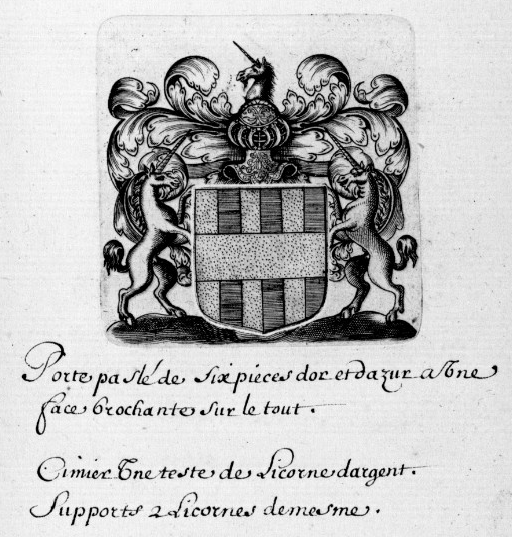 Porte paslé de six pieces dor et dazur a Vne
face brochante sur le tout.
Cimier Vne teste de Licorne dargent.
Supports 2 Licornes de mesme.